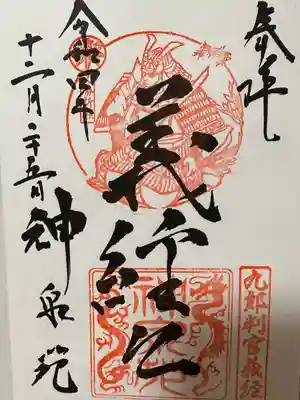 奉拝
義経公
九郎判官義経
令和四年
十二月二十五日 神泉苑